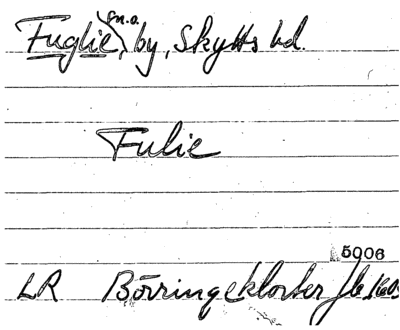 Fuglie sn.o., by, Skytts hd.
Fulie
5006
LR Börringekloster jb 1605